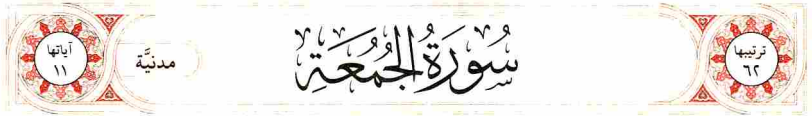 ترتيبها
٦٢
سُورَةُ الْجُمُعَةِ
مدنيَّة
آياتها
١١